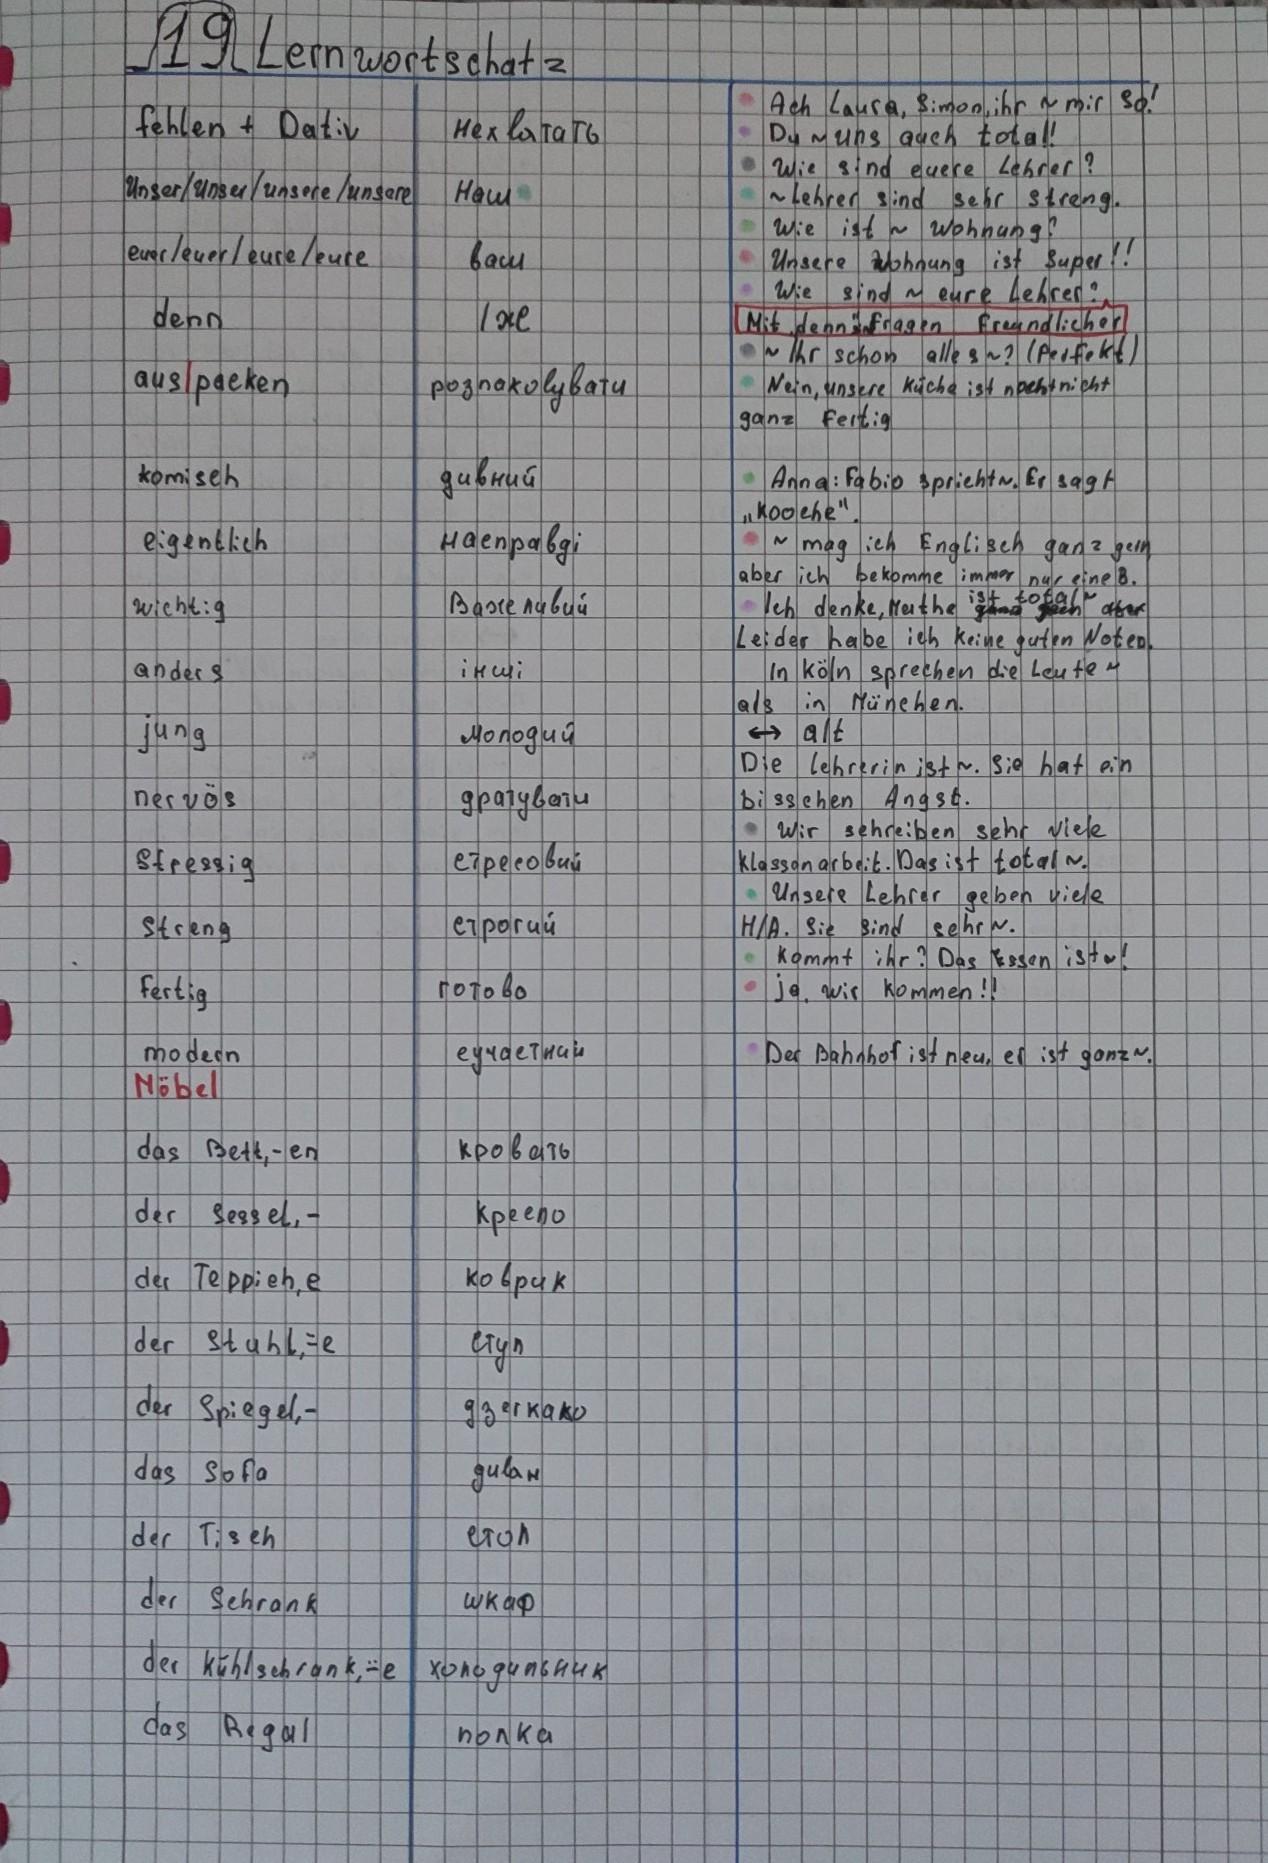 19 Lernwortschatz
fehlen + Dativ нехватать
• Ach Laura, Simon, ihr ~ mir so!
• Du ~ uns auch total!
Unser/unser/unsere/unsere наш
• Wie sind euere Lehrer?
• ~ Lehrer sind sehr streng.
euer/euer/eure/eure ваш
• Wie ist ~ Wohnung?
• Unsere Wohnung ist super!!
denn /же
• Wie sind ~ eure Lehrer?
Mit „denn“: Fragen freundlicher
aus|packen розпаковувати
• ~ Ihr schon alles ~? (Perfekt)
• Nein, unsere Küche ist noch nicht
ganz fertig
komisch дивний
• Anna: Fabio spricht ~. Er sagt
„Kooche“.
eigentlich насправді
• ~ mag ich Englisch ganz gern
aber ich bekomme immer nur eine 3.
wichtig Важеливий
• Ich denke, Mathe ist total ~ aber
Leider habe ich keine guten Noten.
anders інші
In Köln sprechen die Leute ~
als in München.
jung молодий
↔ alt
nervös дратувати
Die Lehrerin ist ~. Sie hat ein
bisschen Angst.
stressig стресовий
• Wir schreiben sehr viele
Klassenarbeit. Das ist total ~.
streng строгий
• Unsere Lehrer geben viele
H/A. Sie sind sehr ~.
fertig готово
• Kommt ihr? Das Essen ist ~!
• ja, wir kommen!!
modern сучастний
• Der Bahnhof ist neu, er ist ganz ~.
Möbel
das Bett, -en кровать
der Sessel, - кресло
der Teppich, e коврик
der Stuhl, ⸚e стул
der Spiegel, - дзеркако
das Sofa диван
der Tisch стол
der Schrank шкаф
der Kühlschrank, ⸚e холодильник
das Regal полка